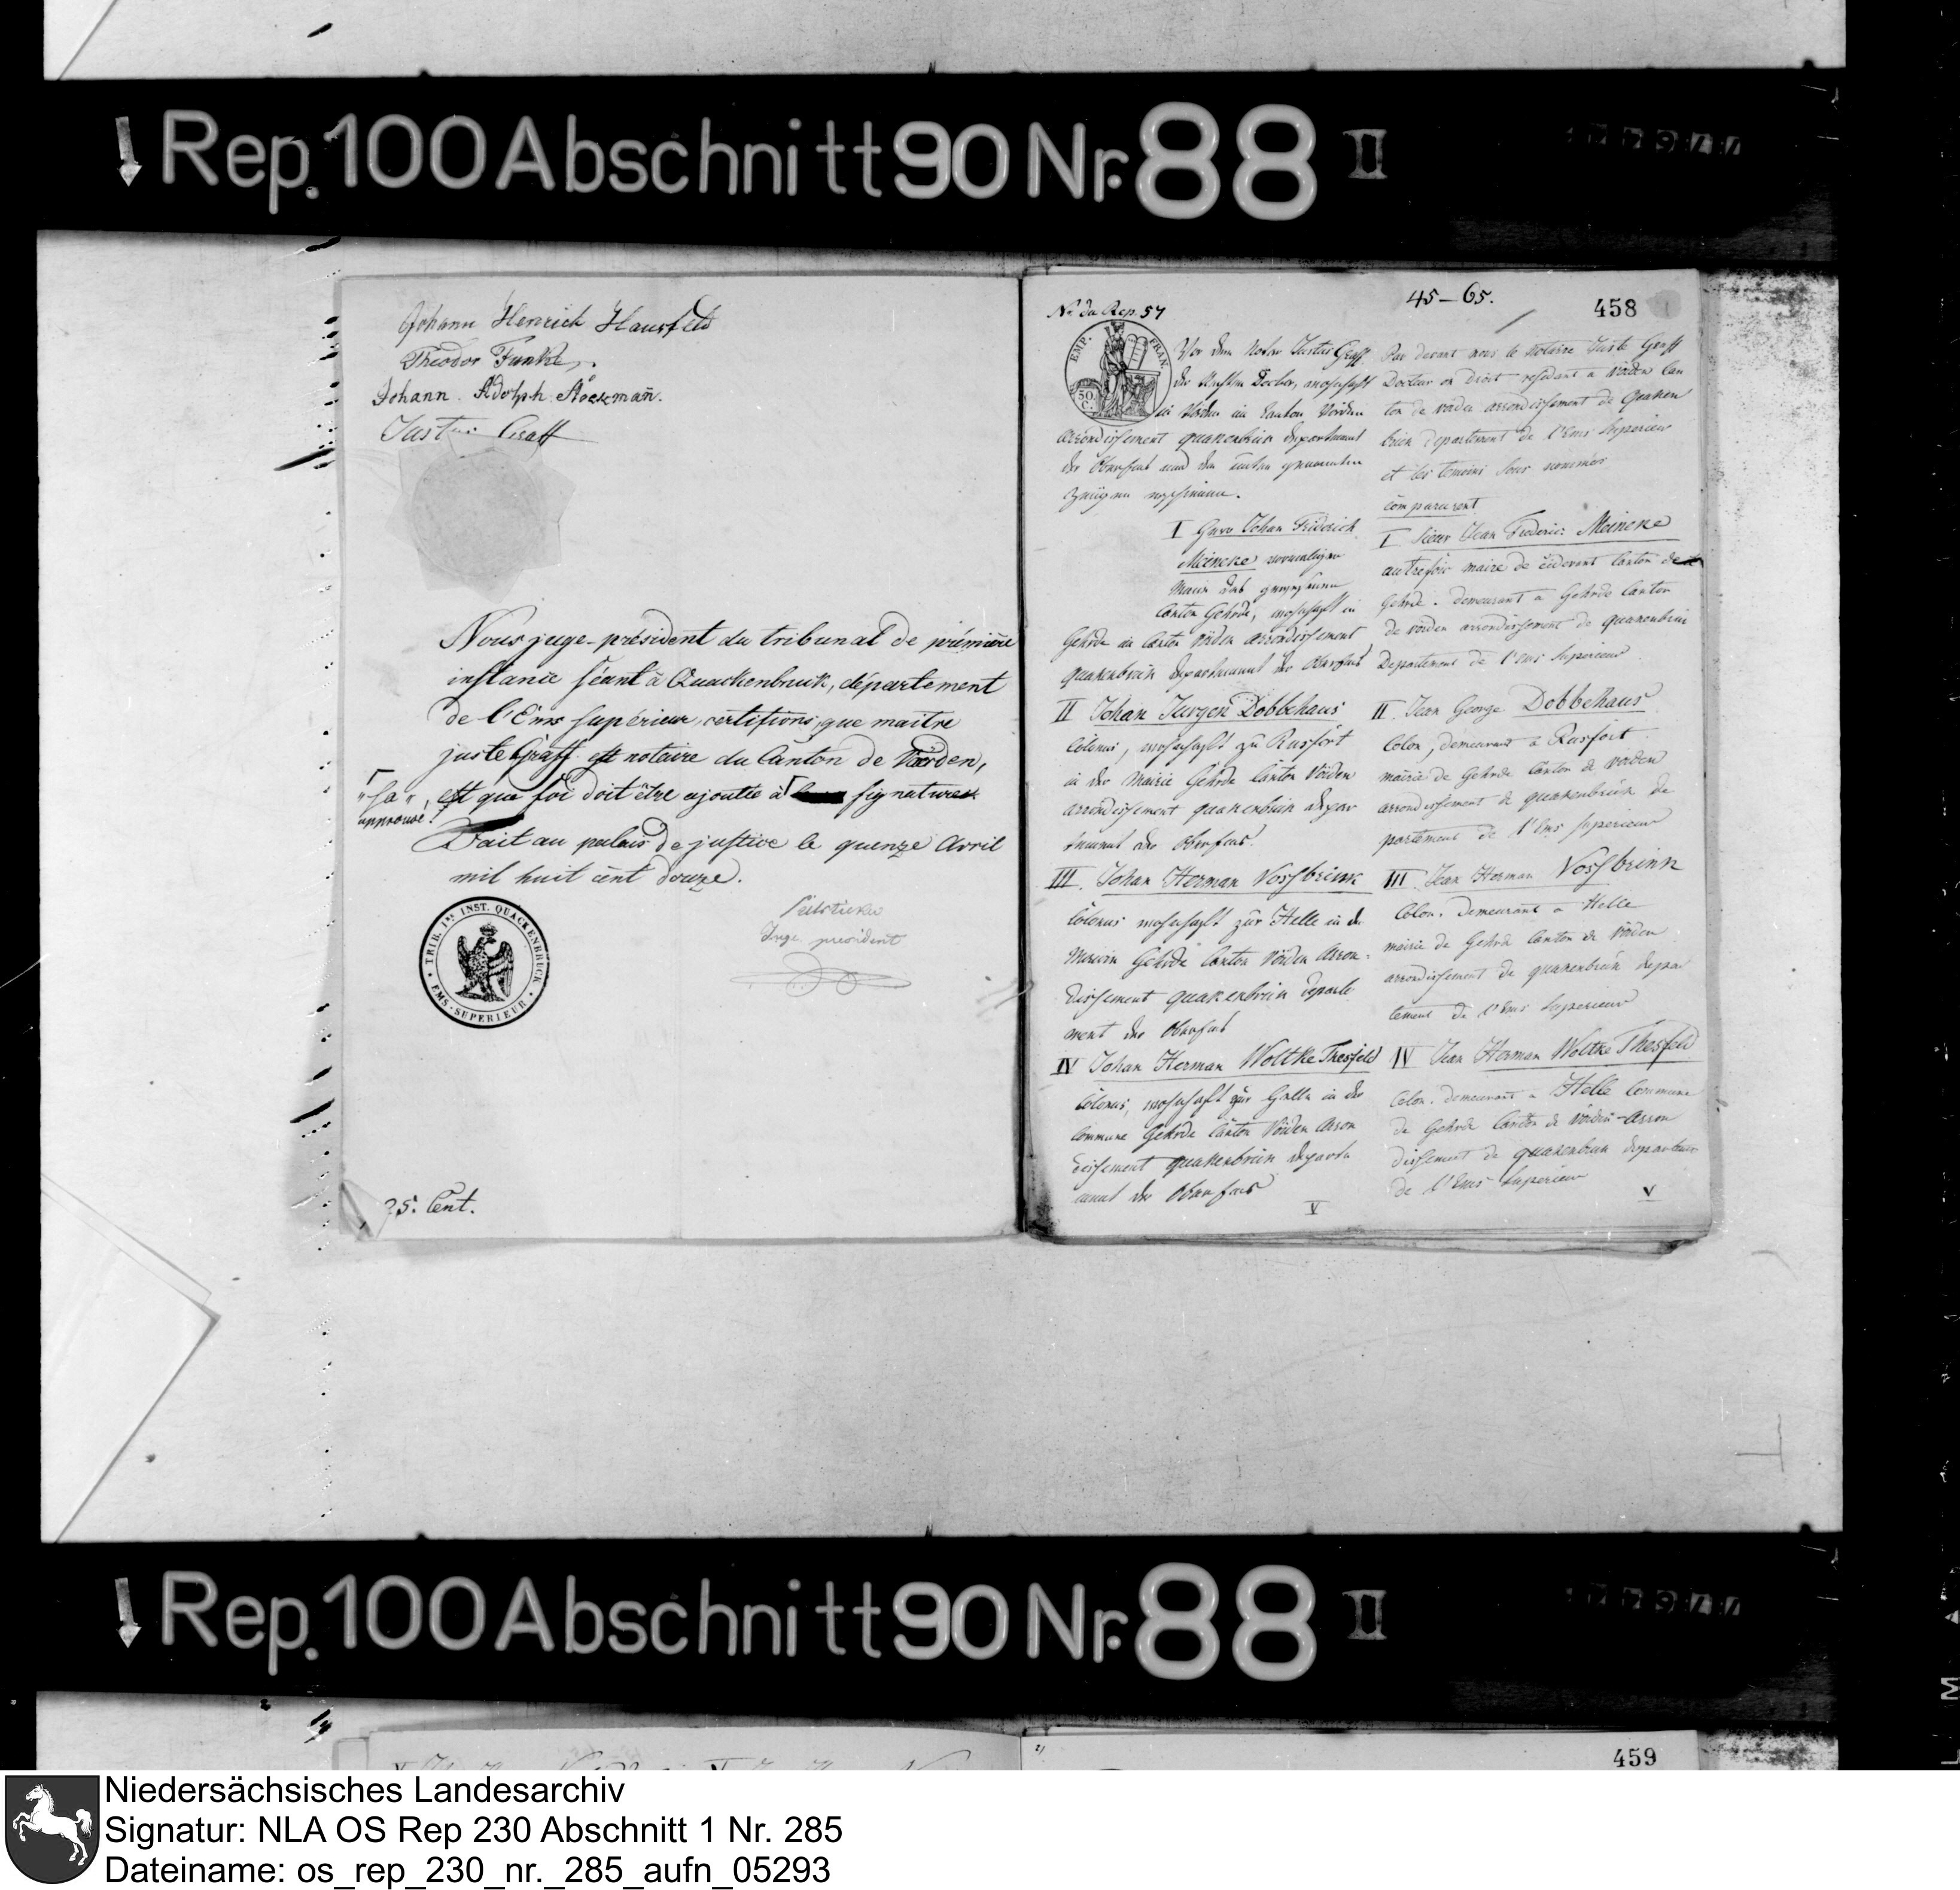 Rep. 100 Abschnitt 90 Nr. 88 II
Johann Henrich Hausfeld
Theodor Funke
Johann Adolph Stockmañ.
Justus Graff
Nous juge-président du tribunal de première
instance séant à Quackenbruck, département
de l'Ems supérieur, certifions, que maitre
juste Graff est notaire du Canton de Vörden,
"sa", est que foi doit être ajoutée à signature
approuvé.
Fait au palais de justice le quinze Avril
mil huit cent douze.
Juge president
TRIB. I.RE INST. QUACKENBRUCK
EMS-SUPERIEUR
25. Cent.
45-65.
458
No. du Rep. 57
EMP. FRAN.
50. C.
Vor dem Notar Justus Graff
der Rechten Doctor, wohnhaft
in Vörden im Canton Vörden
Arrondissement quakenbrück Departement
der Oberems und den unten genannten
Zeugen erschienen.
I Herr Johan Friderich
Meincke vormaliger
Maire des gewesenen
Canton Gehrde, wohnhaft in
Gehrde im Canton Vörden arrondissement
quakenbrück Departement der Oberems
II Johan Jurgen Dobbehaus
Colonus, wohnhaft zu Rusfort
in der Mairie Gehrde Canton Vörden
arrondissement quakenbrück depar
tement der Oberems.
III. Johan Herman Vossbrink
Colonus wohnhaft zur Helle in der
Mairie Gehrde Canton Vörden Arron-
dissement quakenbrück departe
ment der Oberems
IV Johan Herman Woltke Thesfeld
Colonus, wohnhaft zur Helle in der
Commune Gehrde Canton Vörden Arron
dissement quakenbrück departe
ment der Oberems
V
Par devant nous le Notaire Juste Graff
Docteur en droit residant a Vörden Can
ton de vörden arrondissement de Quaken
brück departement de l'Ems superieur
et les temoins sous nommés
comparurent
I Sieur Jean Frederic Meincke
autrefois maire de cidevant Canton de
Gehrde. demeurant a Gehrde Canton
de vörden arrondissement de quakenbrück
Departement de l'Ems superieur
II. Jean George Dobbehaus
Colon, demeurant a Rusfort
mairie de Gehrde Canton de vörden
arrondissement de quakenbrück de
partement de l'Ems superieur
III. Jean Herman Vossbrink
Colon. demeurant a Helle
mairie de Gehrde Canton de Vörden
arrondissement de quakenbrück depar
tement de l'Ems superieur
IV Jean Herman Woltke Thesfeld
Colon. demeurant a Helle Commune
de Gehrde Canton de Vörden-Arron
dissement de quakenbrück departement
de l'Ems superieur
V
Rep. 100 Abschnitt 90 Nr. 88 II
459
Niedersächsisches Landesarchiv
Signatur: NLA OS Rep 230 Abschnitt 1 Nr. 285
Dateiname: os_rep_230_nr._285_aufn_05293